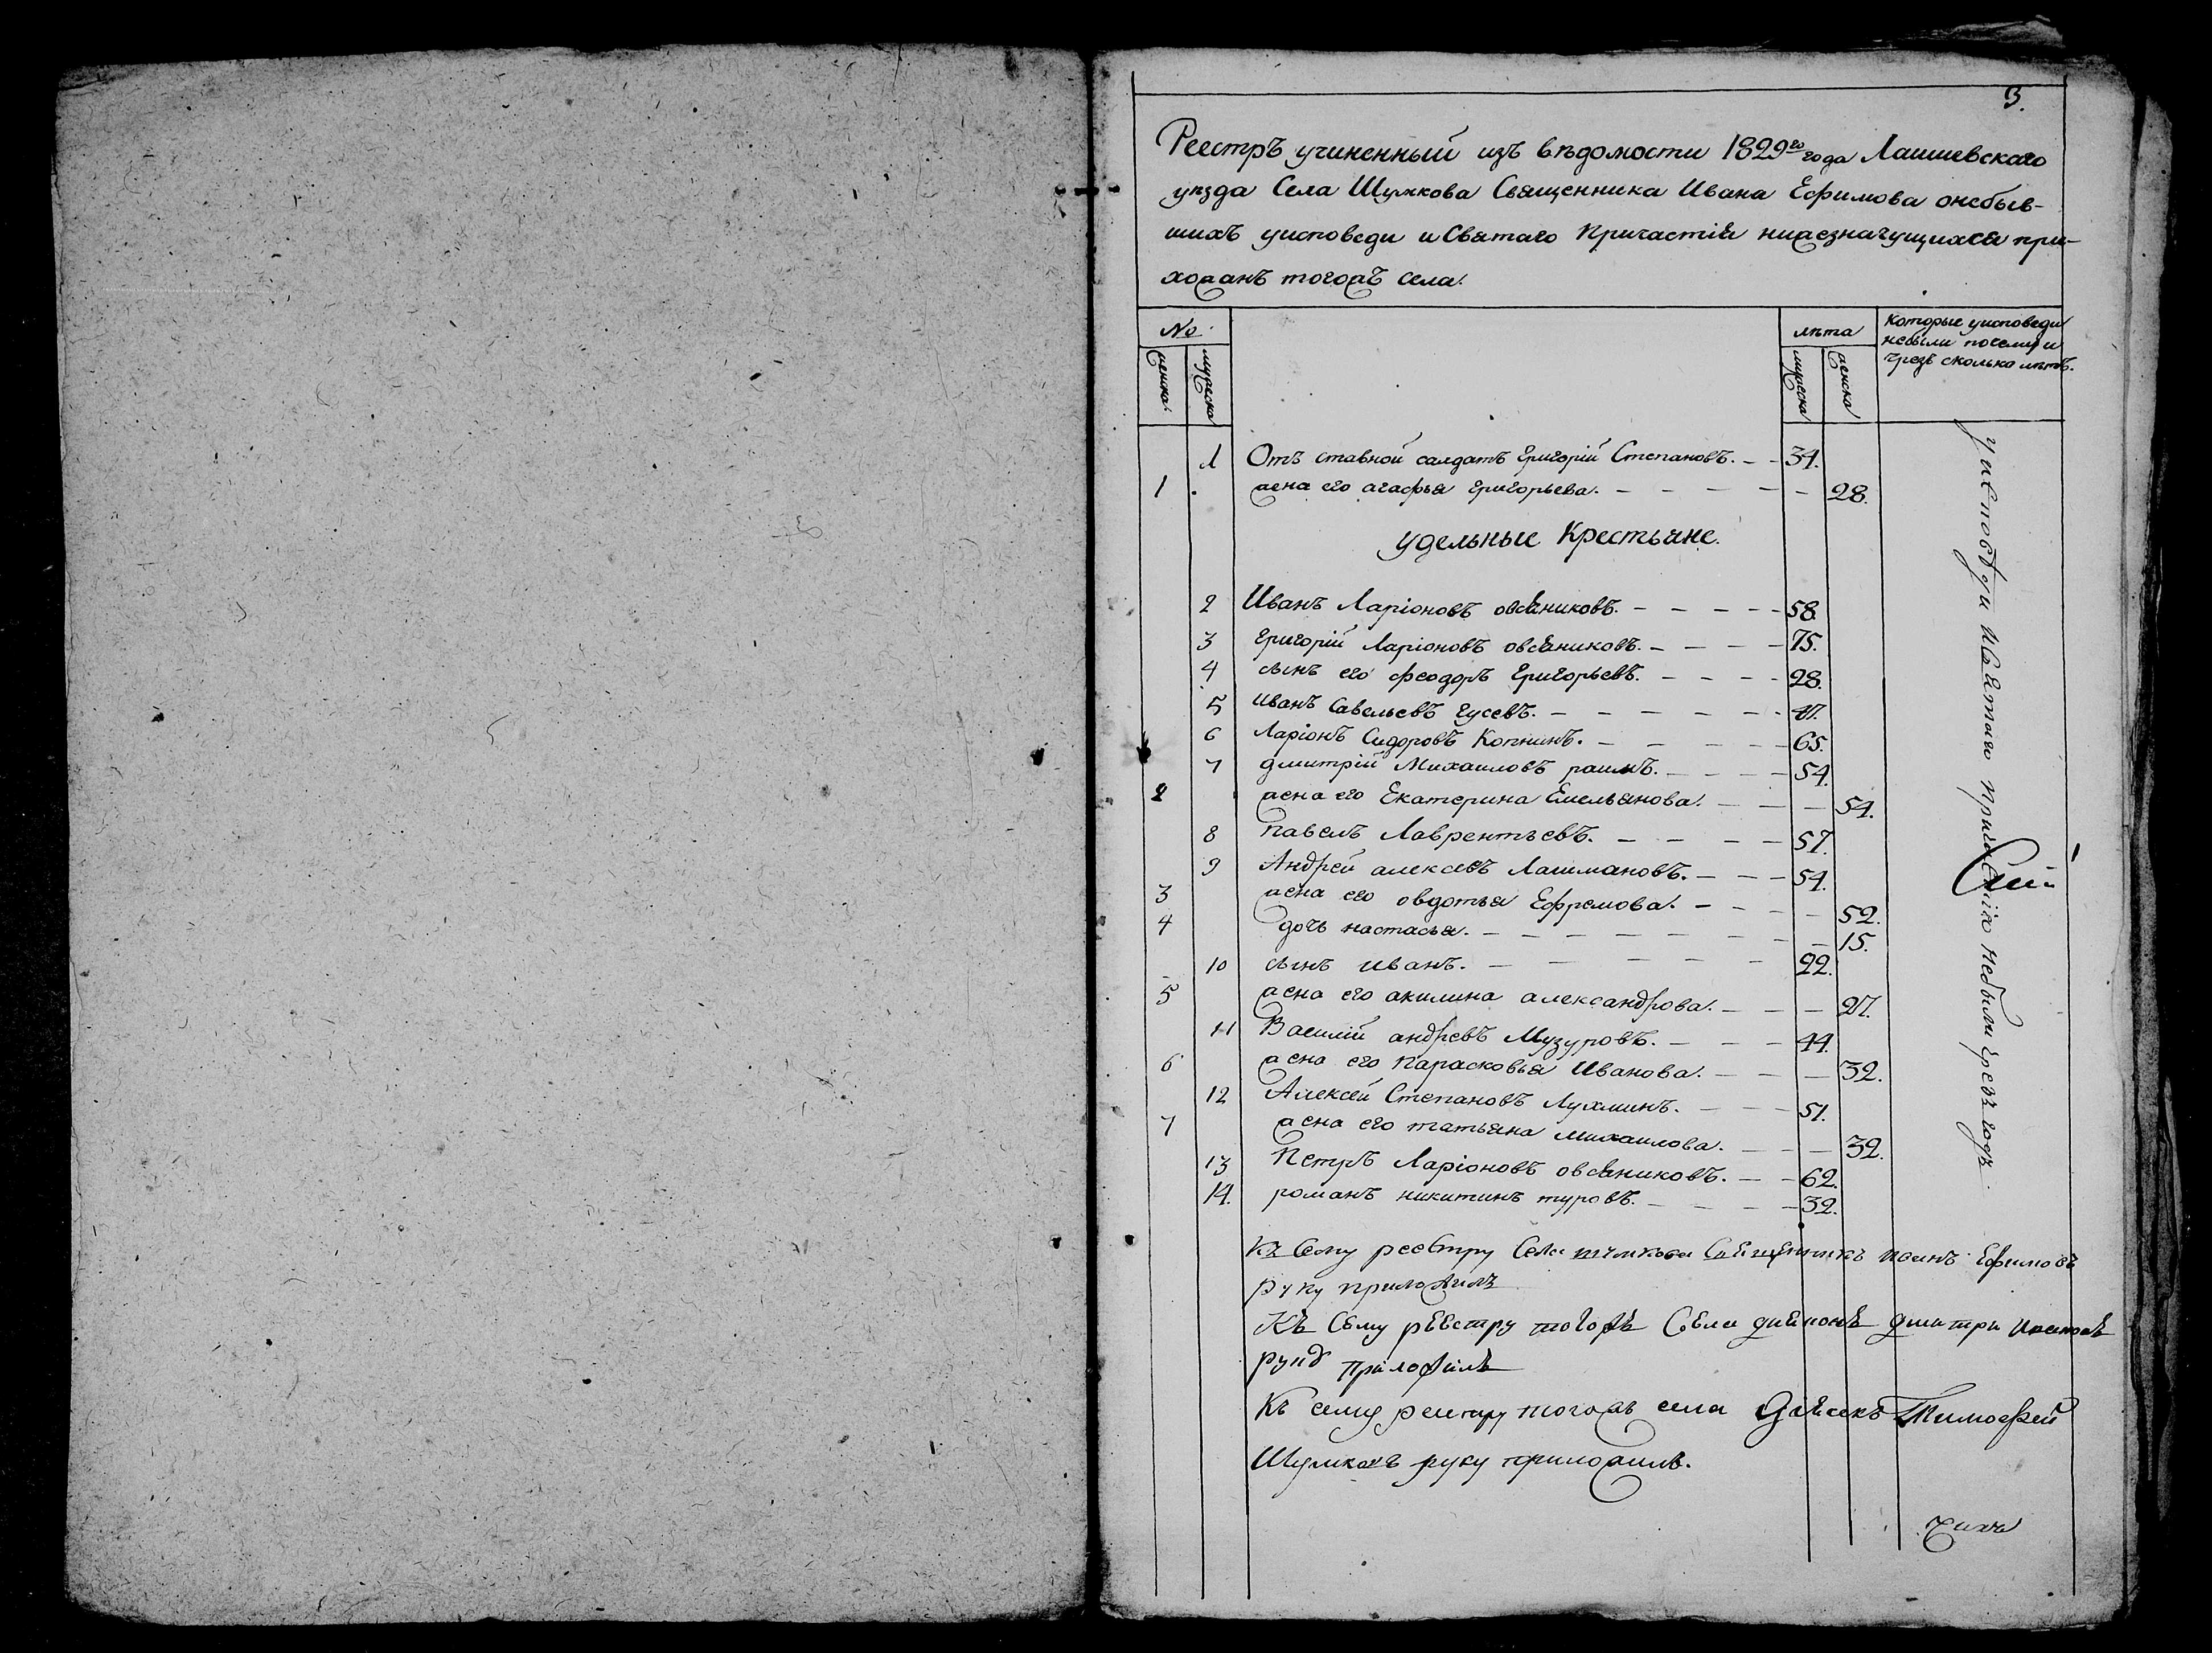 3.
Реестръ учиненный изъ вѣдомости 1829го года Лаишевскаго
уѣзда Села Шумкова Священника Ивана Ефимова онебыв-
шихъ уисповеди иСвятаго Причастія нижезначущихся при-
хожанъ тогожъ села.
No
лѣта
которые уисповеди
небыли почему и
чрезъ сколько лѣтъ.
женска.
мужеска
мужеска
женска
1 Отъ ставной салдатъ Григорій Степановъ. 34.
1 жена его агафья Григорьева. 28.
удельные Крестьяне.
2 Иванъ Ларіоновъ овсяниковъ. 58.
3 Григорій Ларіоновъ овсяниковъ. 75.
4 сынъ его феодоръ Григорьевъ. 28.
5 иванъ Савельевъ Гусевъ. 47.
6 Ларіонъ Сидоровъ Копнинъ. 65.
7 дмитрій Михаиловъ 54.
2 жена его Екатерина Емельянова. 54.
8 павелъ Лаврентьевъ. 57.
9 Андрей алексевъ Лашмановъ. 54.
3 жена его овдотья Ефремова. 52.
4 дочь настасья. 15.
10 сынъ иванъ. 22.
5 жена его акилина александрова. 27.
11 Василій андревъ Музуровъ. 44.
6 жена его Парасковья Иванова. 32.
12 Алексей Степановъ Лухминъ. 51.
7 жена его татьяна михаилова. 32.
13 Петръ Ларіоновъ овсяниковъ. 62.
14. романъ никитинъ туровъ. 32.
уисповеди иСвятаго причастія небыли Чрезъ годъ.
Къ Сему реестру Села шумкова Священникъ иванъ Ефимовъ
руку приложилъ
Къ Сему рЕЕстру тогожъ Села диаконъ дмитри ивановъ
руку приложилъ
Къ сему реестру тогожъ села Дьячекъ Тимофей
Шумковъ руку приложилъ.